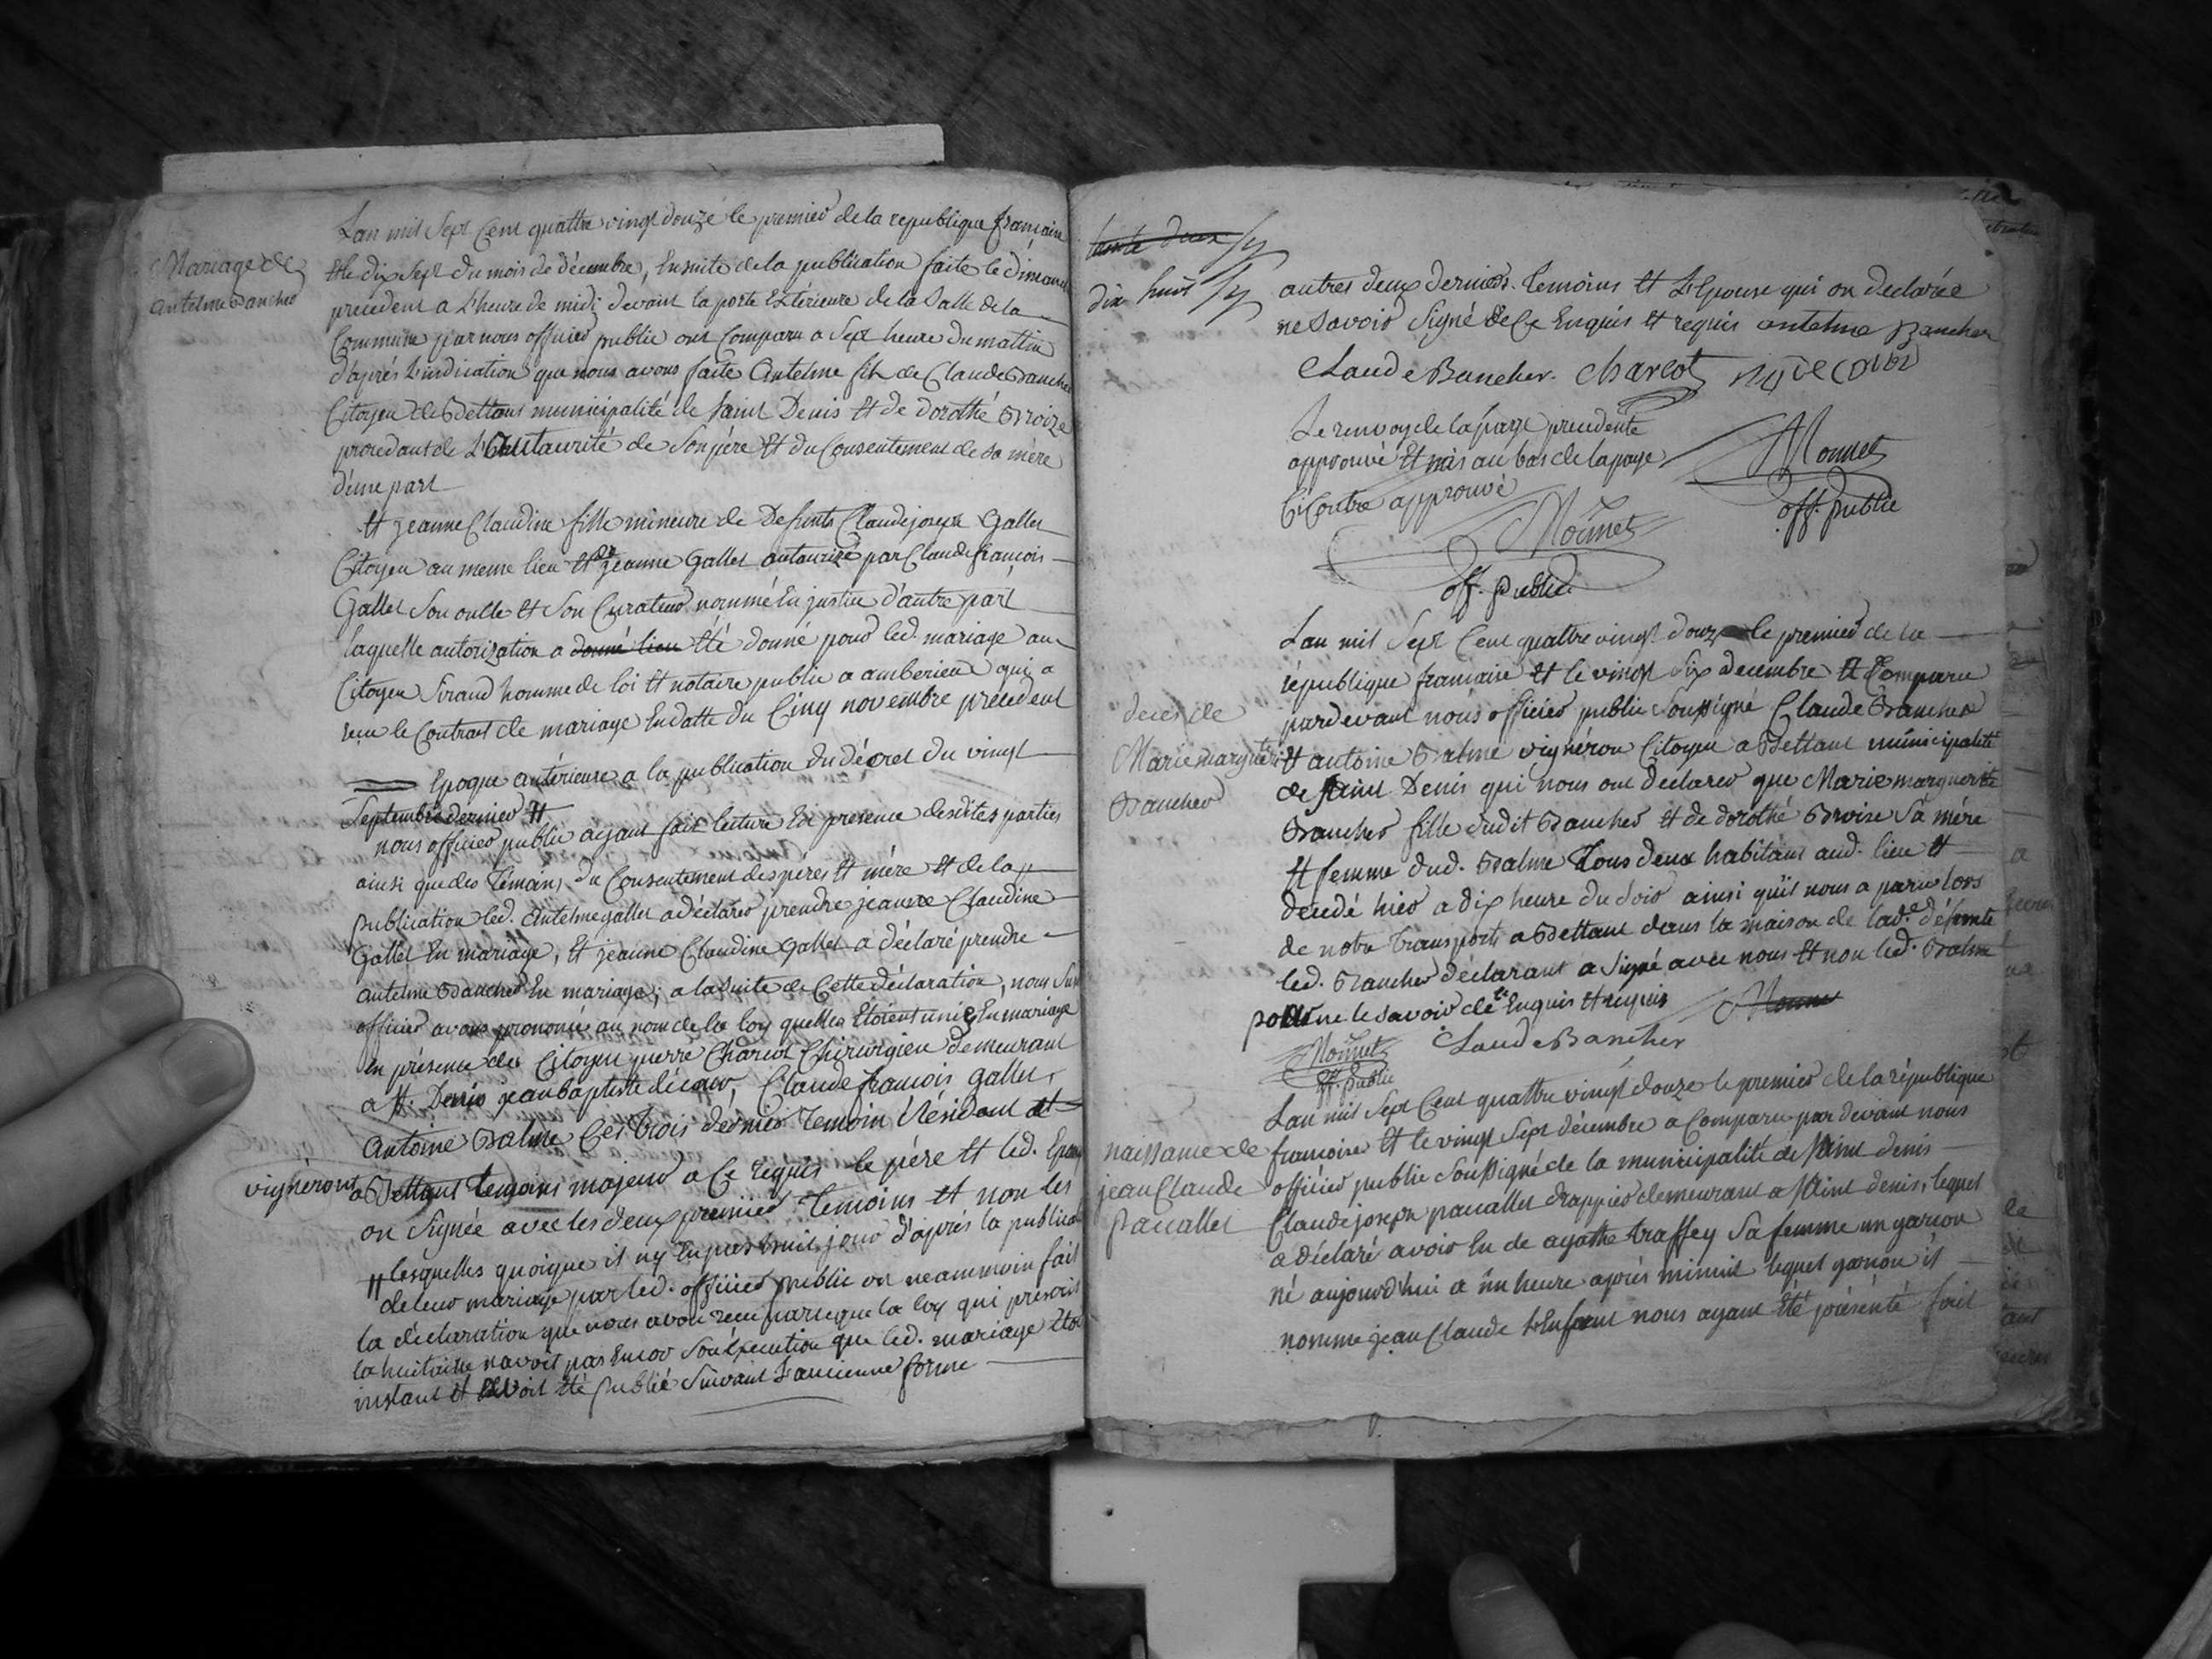 Mariage de
antelme Bancher
Lan mil Sept Cent quattre vingt douze le premier de la republique francaise
et le dix Sept du mois de décembre, Ensuite de la publication faite le dimanch
précédent a L'heure de midi devant la porte Extérieure de la Salle de la
Commune par nous officier public ont Comparu a Sept heure du mattin
d'aprés L'indication que nous avons faite Antelme fils de Claude Bancher
Citoyen de Bettant municipalité de Saint Denis et de dorothé Broize
procedant de L'autaurité de Son pére et du Consentement de Sa mère
d'une part
et jeanne Claudine fille mineure de Defunts Claude joseph Gallet
Citoyen au meme lieu et de jeanne Gallet autaurizé par Claude francois
Gallet Son oncle et Son Curateur nommé En justice d'autre part
laquelle autorization a donné lieu été donné pour led. mariage au
Citoyen Sirand homme de loi et notaire public a amberieu qui a
reçu le Contrat de mariage En datte du Cinq novembre précedent
Epoque antérieure a la publication du décret du vingt
Septembre dernier et
nous officier public ayant fait lecture En presence desdites parties
ainsi que des Témoins, du Consentement des péres et mére et de la
publication led. Antelme gallet a déclarer prendre jeanne Claudine
Gallet En mariage, Et jeanne Claudine Gallet a déclaré prendre
antelme Bancher En mariage; a la Suite de Cette déclaration, nous Sus
officier avons prononcé au nom de la loy quelles Etoient unies En mariage
en présence des Citoyen pierre Charcot Chirurgien demeurant
a St. Denis jean baptiste décour, Claude francois Gallet,
Antoine Balme Ces trois dernier Temoin Résidant et
vignérons a Bettant temoins majeur a Ce requis le pére et led. Epoux
on Signée avec les deux premier Temoins et non les
lesquelles quoique il n'y En pas huit jour d'aprés la publicat
de leur mariage par led. officier public on neammoin fait
la déclaration que nous avon reçu parceque la loy qui préscrit
la huitaine navoit pas Encor Son éxécution que led. mariage Etoi
instant et avoit été publié Suivant L'ancienne forme
trente deux
dix huit
autres deux derniers Temoins et L'Epouse qui on declarée
ne Savoir Signé de Ce Enquis et requis antelme Bancher
Claude Bancher. Charcot
Le renvoy de la page precedente
approuvé et mis au bas de la page
Ci Contre approuvé
Monnet
off. public
Monnet
off. public
deces de
Marie marguerite
Bancher
Lan mil Sept Cent quattre vingt douze le premier de la
république francaise et le vingt Six decembre et Comparu
pardevant nous officier public Soussigné Claude Bancher
et antoine Balme vignéron Citoyen a Bettant municipalité
de Saint Denis qui nous ont declarer que Marie marguerite
Bancher fille dudit Bancher et de dorothé Broize Sa mére
et femme dud. Balme Tous deux habitant aud. lieu et
decedé hier a dix heure du Soir ainsi qu'il nous a paru lors
de notre transports a Bettant dans la maison de lad.e défunte
led. Bancher déclarant a Signé avec nous et non led. Balme
pour ne le savoir de ce Enquis et requis Monnet
Monnet
off. public
Claude Bancher
naissance de
jean Claude
Pacallet
Lan mil Sept Cent quattre vingt douze le premier de la république
francoise et le vingt Sept décembre a Comparu par devant nous
officier public Soussigné de la municipalité de Saint denis
Claude joseph pacallet drappier demeurant a Saint denis, lequel
a déclaré avoir Eu de agathe traffey Sa femme un garcon
né aujourd'hui a un heure aprés minuit lequel garcon il
nomme jean Claude L'Enfant nous ayant été présenté fait